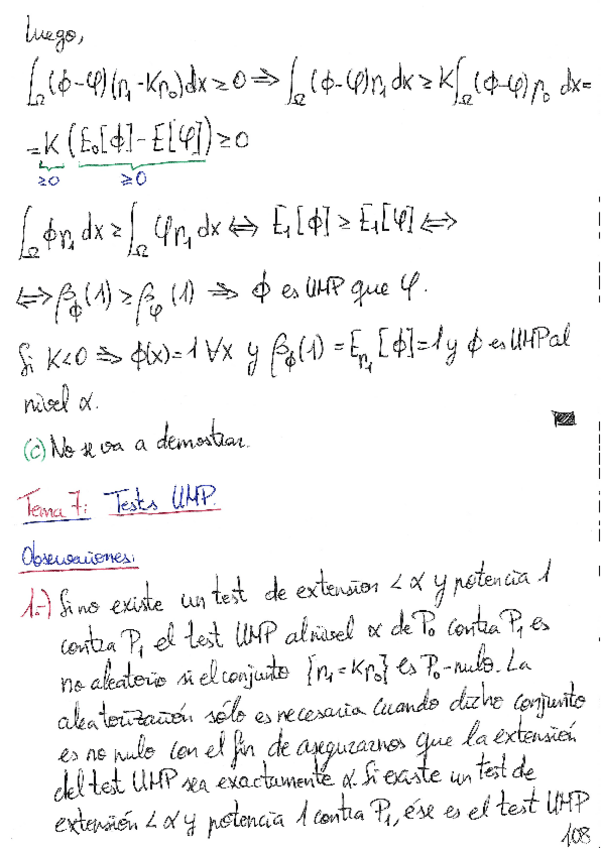 Luego,
∫_Ω (ϕ-φ)(p₁-Kp₀)dx ≥ 0 ⇒ ∫_Ω (ϕ-φ)p₁ dx ≥ K∫_Ω (ϕ-φ)p₀ dx =
= K (E₀[ϕ] - E[φ]) ≥ 0
≥0 ≥0
∫_Ω ϕp₁ dx ≥ ∫_Ω φp₁ dx ⇔ E₁[ϕ] ≥ E₁[φ] ⇔
⇔ β_ϕ(1) ≥ β_φ(1) ⇒ ϕ es UMP que φ.
Si K<0 ⇒ ϕ(x)=1 ∀x y β_ϕ(1) = E_p₁[ϕ]=1 y ϕ es UMP al
nivel α.
(c) No se va a demostrar.
Tema 7: Tests UMP.
Observaciones:
1.-) Si no existe un test de extension < α y potencia 1
contra P₁ el test UMP al nivel α de P₀ contra P₁ es
no aleatorio si el conjunto {p₁ = Kp₀} es P₀-nulo. La
aleatorización sólo es necesaria cuando dicho conjunto
es no nulo con el fin de asegurarnos que la extensión
del test UMP sea exactamente α. Si existe un test de
extensión < α y potencia 1 contra P₁, ése es el test UMP
108